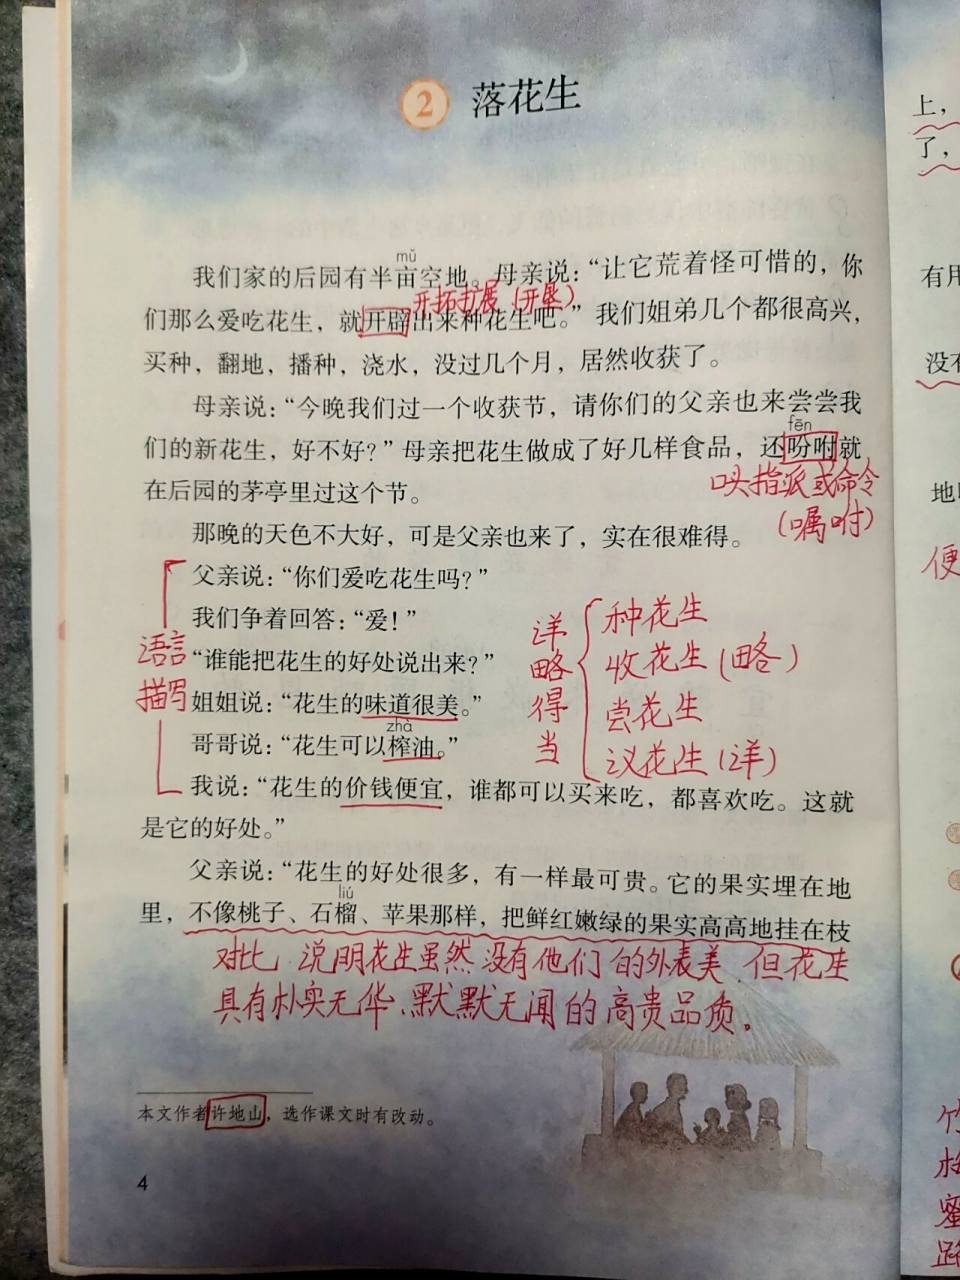 2 落花生
mǔ
我们家的后园有半亩空地。母亲说：“让它荒着怪可惜的，你
开拓扩展（开垦）
们那么爱吃花生，就开辟出来种花生吧。”我们姐弟几个都很高兴，
买种，翻地，播种，浇水，没过几个月，居然收获了。
母亲说：“今晚我们过一个收获节，请你们的父亲也来尝尝我
fēn
们的新花生，好不好？”母亲把花生做成了好几样食品，还吩咐就
口头指派或命令
在后园的茅亭里过这个节。
（嘱咐）
那晚的天色不大好，可是父亲也来了，实在很难得。
父亲说：“你们爱吃花生吗？”
我们争着回答：“爱！”
“谁能把花生的好处说出来？”
姐姐说：“花生的味道很美。”
zhà
哥哥说：“花生可以榨油。”
我说：“花生的价钱便宜，谁都可以买来吃，都喜欢吃。这就
是它的好处。”
语言
描写
详
略
得
当
种花生
收花生（略）
尝花生
议花生（详）
父亲说：“花生的好处很多，有一样最可贵。它的果实埋在地
liú
里，不像桃子、石榴、苹果那样，把鲜红嫩绿的果实高高地挂在枝
对比 说明花生虽然没有他们的外表美 但花生
具有朴实无华、默默无闻的高贵品质。
本文作者许地山，选作课文时有改动。
4
上，
了，
有用
没有
地
便
竹
蜜
路